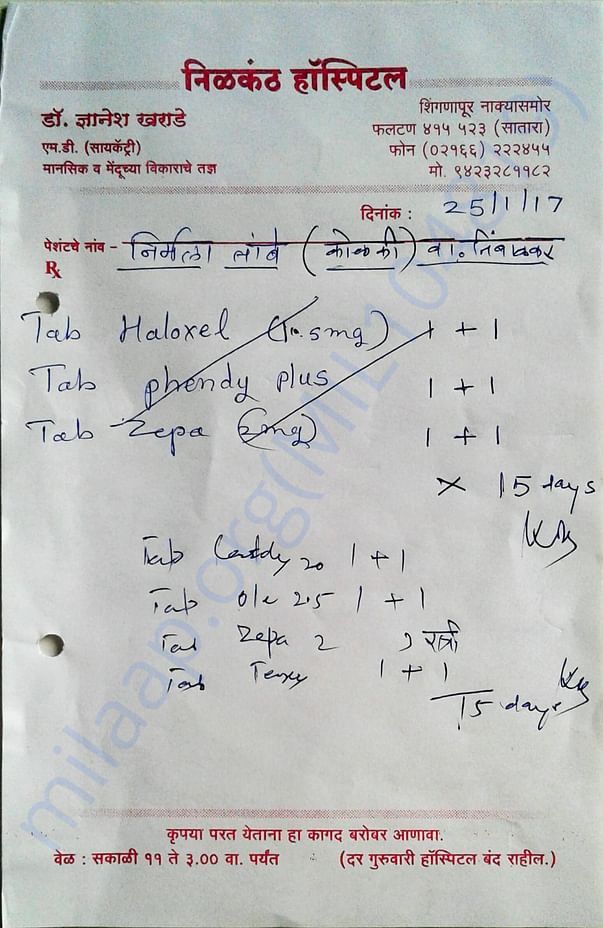 निळकंठ हॉस्पिटल
डॉ. ज्ञानेश खराडे
एम.डी. (सायकॅट्री)
मानसिक व मेंदूच्या विकाराचे तज्ञ
शिंगणापूर नाक्यासमोर
फलटण ४१५ ५२३ (सातारा)
फोन (०२१६६) २२२४५५
मो. ९४२३२८११८२
दिनांक : 25/1/17
पेशंटचे नाव - निर्मला लांबे (कोळकी)
Rx
Tab Haloxel 1 + 1
Tab phendy plus 1 + 1
Tab Zepa (2mg) 1 + 1
x 15 days
Tab 20 1 + 1
Tab 2.5 1 + 1
Tab Zepa 2 रात्री
Tab 1 + 1
15 days
milaap.org
कृपया परत येताना हा कागद बरोबर आणावा.
वेळ : सकाळी ११ ते ३.०० वा. पर्यंत (दर गुरुवारी हॉस्पिटल बंद राहील.)